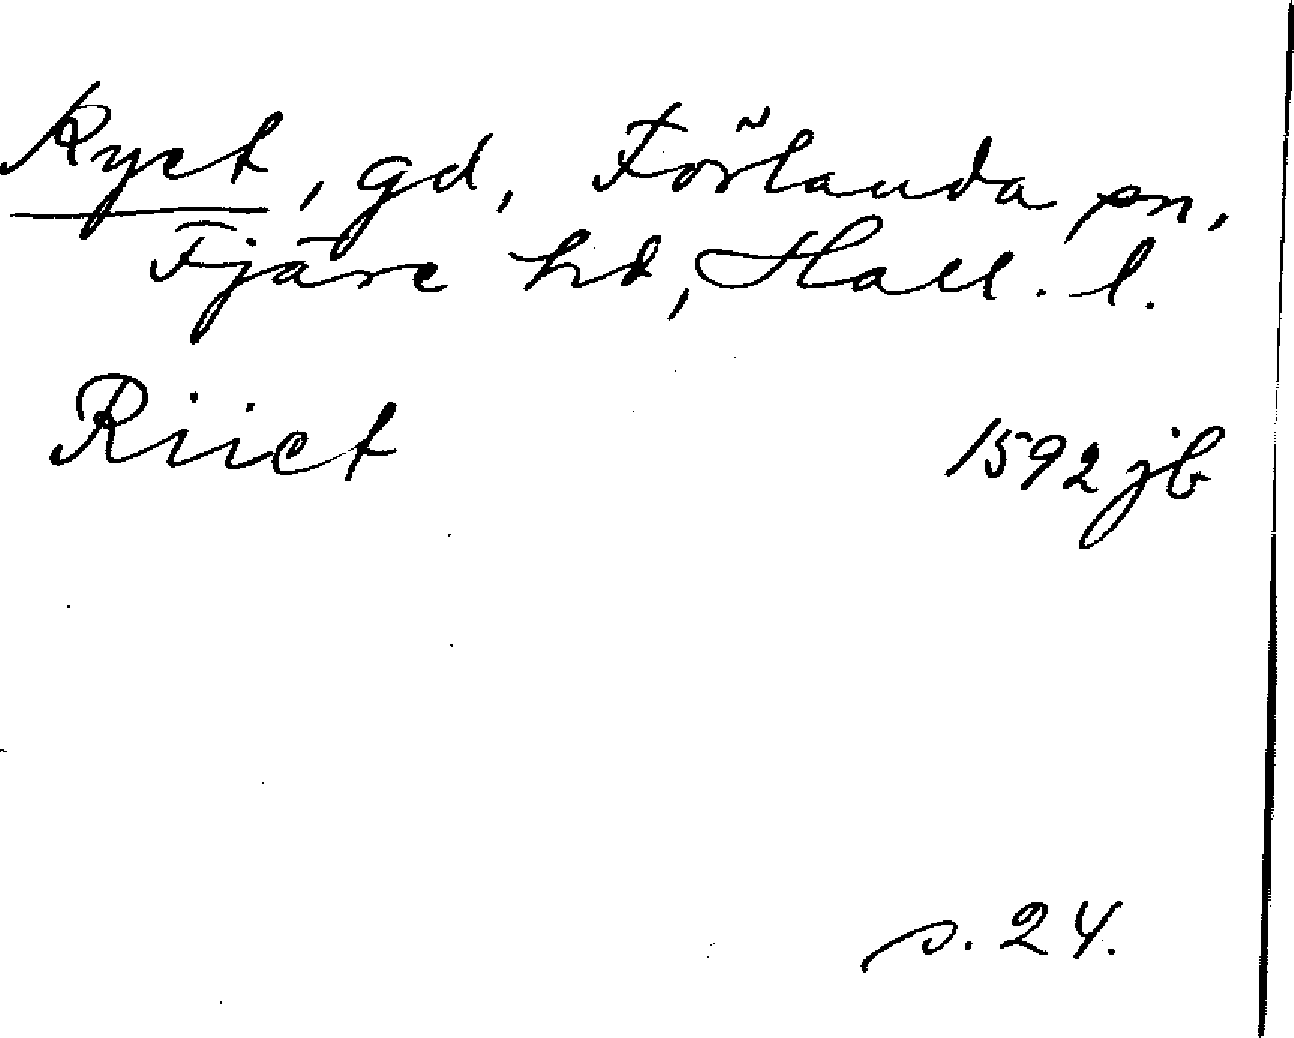 Ryet, gd, Förlanda sn,
Fjäre hd, Hall. l.
Riiet 1592 jb
s. 24.